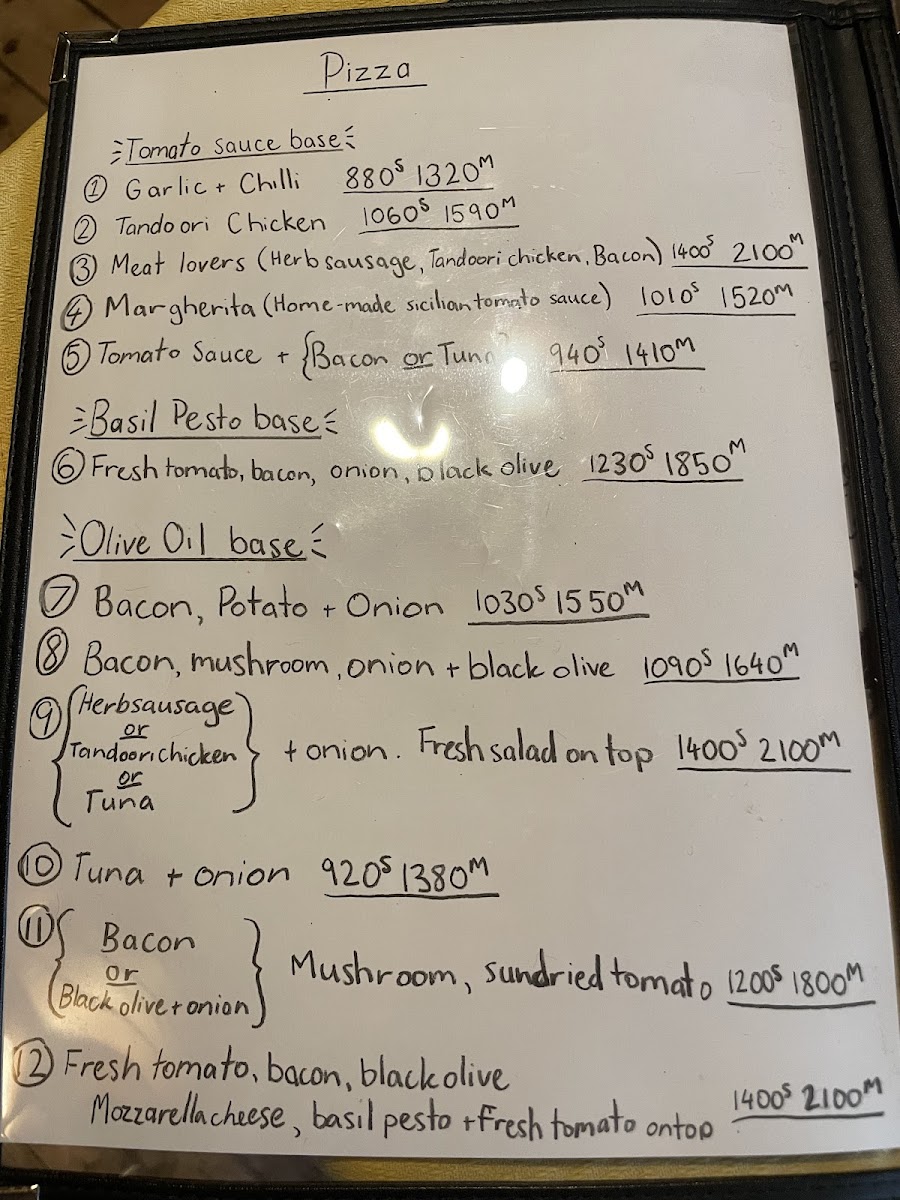 Pizza
Tomato sauce base
① Garlic + Chilli 880S 1320M
② Tandoori Chicken 1060S 1590M
③ Meat lovers (Herb sausage, Tandoori chicken, Bacon) 1400S 2100M
④ Margherita (Home-made sicilian tomato sauce) 1010S 1520M
⑤ Tomato Sauce + {Bacon or Tuna 940S 1410M
Basil Pesto base
⑥ Fresh tomato, bacon, onion, black olive 1230S 1850M
Olive Oil base
⑦ Bacon, Potato + Onion 1030S 1550M
⑧ Bacon, mushroom, onion + black olive 1090S 1640M
⑨ {Herb sausage
or
Tandoori chicken } + onion. Fresh salad on top 1400S 2100M
or
Tuna
⑩ Tuna + onion 920S 1380M
⑪ { Bacon
or } Mushroom, sundried tomato 1200S 1800M
Black olive + onion
⑫ Fresh tomato, bacon, black olive
Mozzarella cheese, basil pesto + Fresh tomato on top 1400S 2100M